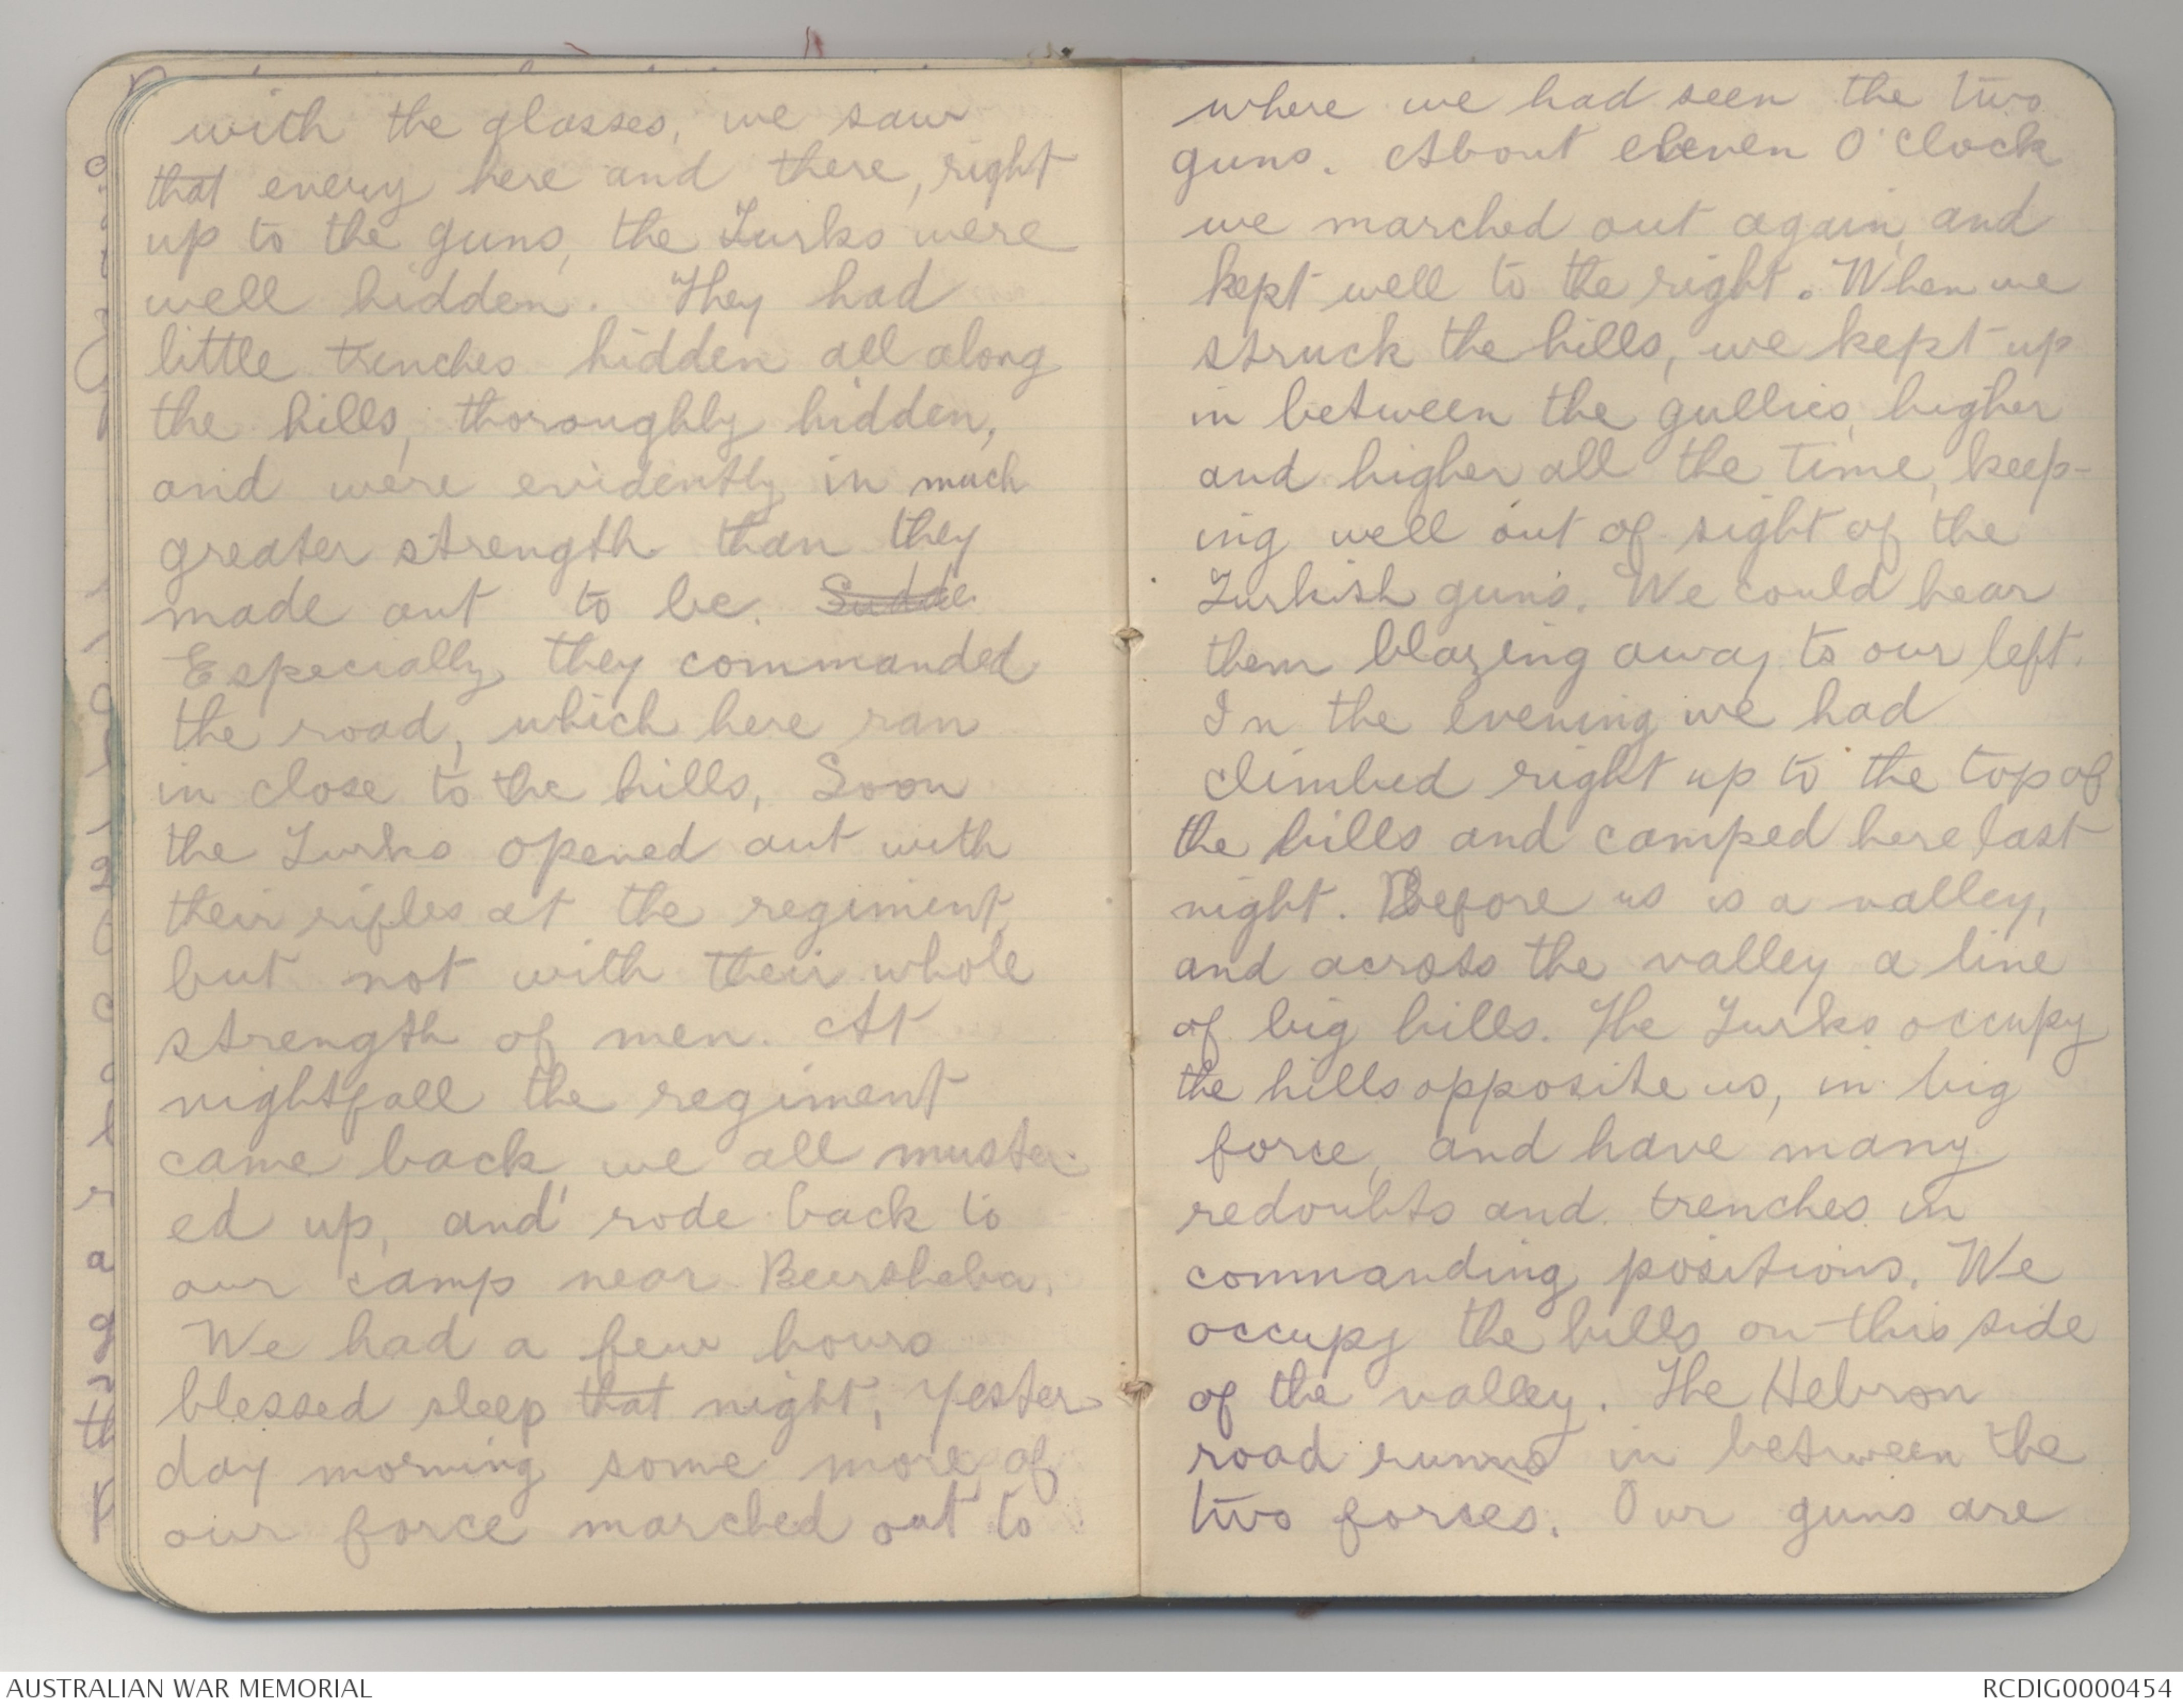 with the glasses, we saw
that every here and there, right
up to the guns, the Turks were
well hidden. They had
little trenches hidden all along
the hills, thoroughly hidden,
and were evidently in much
greater strength than they
made out to be. Sudde
Especially they commanded
the road, which here ran
in close to the hills, Soon
the Turks opened out with
their rifles at the regiment,
but not with their whole
strength of men. At
nightfall the regiment
came back, we all muster-
ed up, and rode back to
our camp near Beersheba.
We had a few hours
blessed sleep that night, Yester
day morning some more of
our force marched out to
where we had seen the two
guns. About eleven O'Clock
we marched out again, and
kept well to the right. When we
struck the hills, we kept up
in between the gullies, higher
and higher all the time, keep-
ing well out of sight of the
Turkish guns. We could hear
them blazing away to our left.
In the evening we had
climbed right up to the top of
the hills and camped here last
night. Before us is a valley,
and across the valley a line
of big hills. The Turks occupy
the hills opposite us, in big
force, and have many
redoubts and trenches in
commanding positions. We
occupy the hills on this side
of the valley. The Hebron
road runns in between the
two forces. Our guns are
AUSTRALIAN WAR MEMORIAL
RCDIG0000454